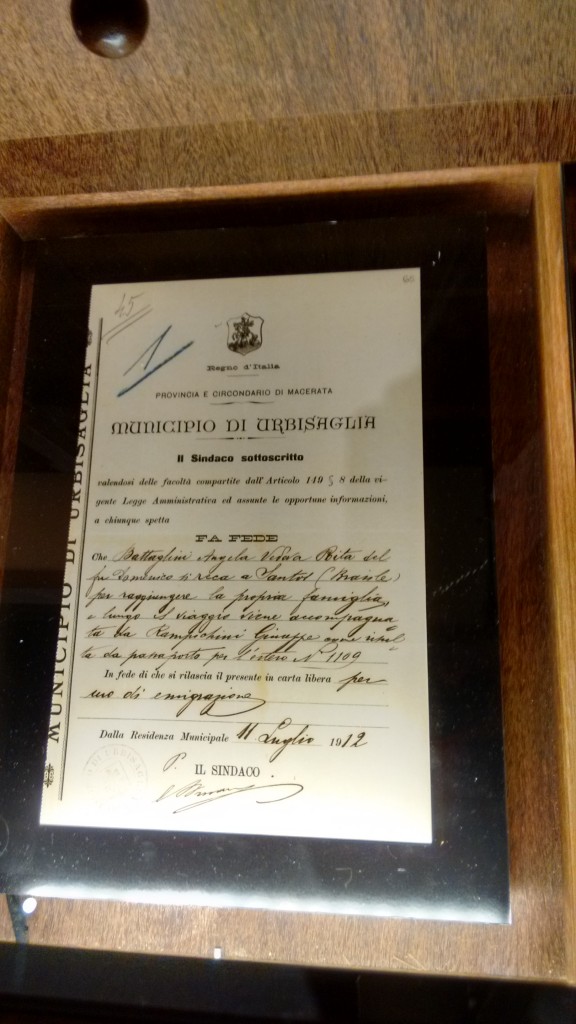 45
60
1
Regno d'Italia
PROVINCIA E CIRCONDARIO DI MACERATA
MUNICIPIO DI URBISAGLIA
MUNICIPIO DI URBISAGLIA
Il Sindaco sottoscritto
valendosi delle facoltà compartite dall'Articolo 149 § 8 della vi-
gente Legge Amministrativa ed assunte le opportune informazioni,
a chiunque spetta
FA FEDE
Che Battaglini Angela Vedova Rita del
fu Domenico si reca a Santos (Brasile)
per raggiungere la propria famiglia,
e lungo il viaggio viene accompagna-
ta da Giuseppe come risul-
ta da passaporto per l'estero N° 1109
In fede di che si rilascia il presente in carta libera per
uso di emigrazione
Dalla Residenza Municipale 11 Luglio 1912
P. IL SINDACO